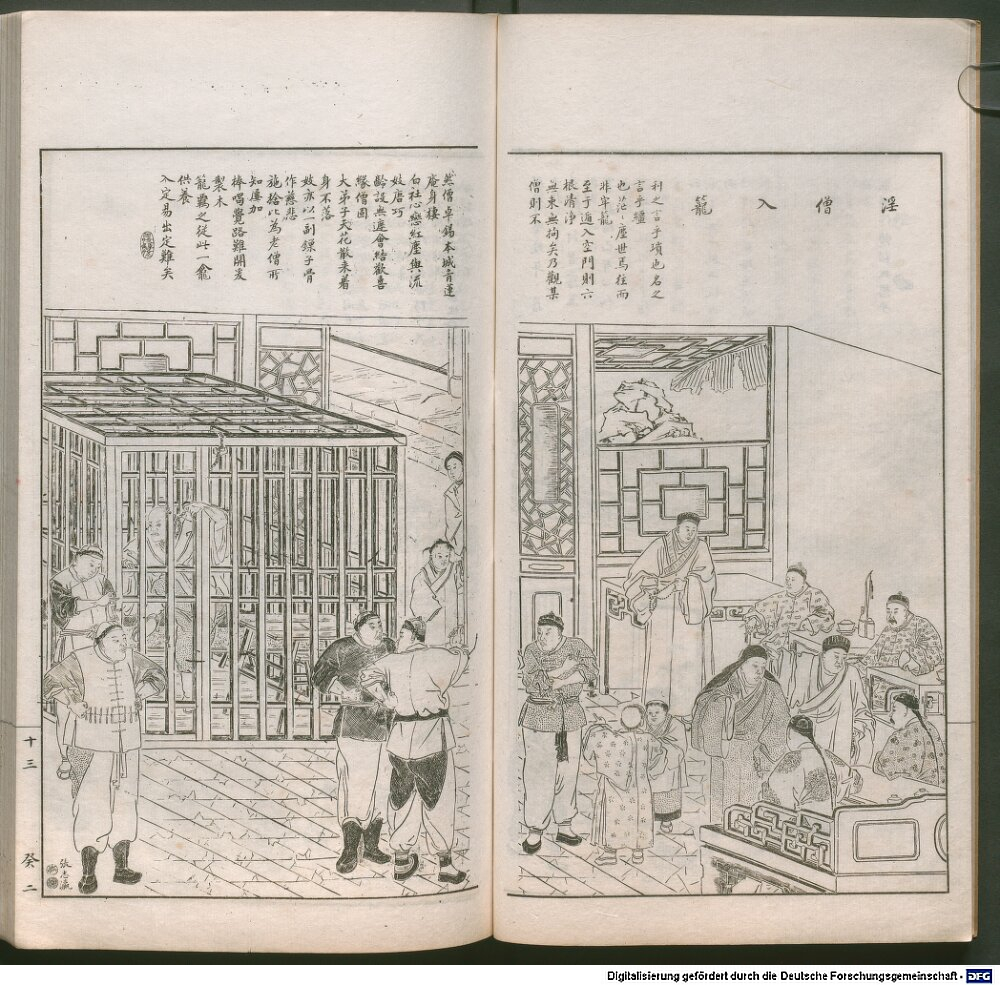 淫僧入籠
利之言乎瑣也名之
言乎韁
也茫〻塵世焉往而
非牢籠
至于遁入空門則六
根清淨
無束無拘矣乃觀某
僧則不
然僧卓錫本城青蓮
庵身棲
白社心戀紅塵與流
妓唐巧
齡設無遮會結歡喜
緣僧固
大弟子天花散來着
身不落
妓亦以一副鏁子骨
作慈悲
施捨比為老僧所
知屢加
棒喝覺路難開爰
製木
籠羈之從此一龕
供養
入定易出定難矣
張志瀛
十三
癸二
Digitalisierung gefördert durch die Deutsche Forschungsgemeinschaft - DFG